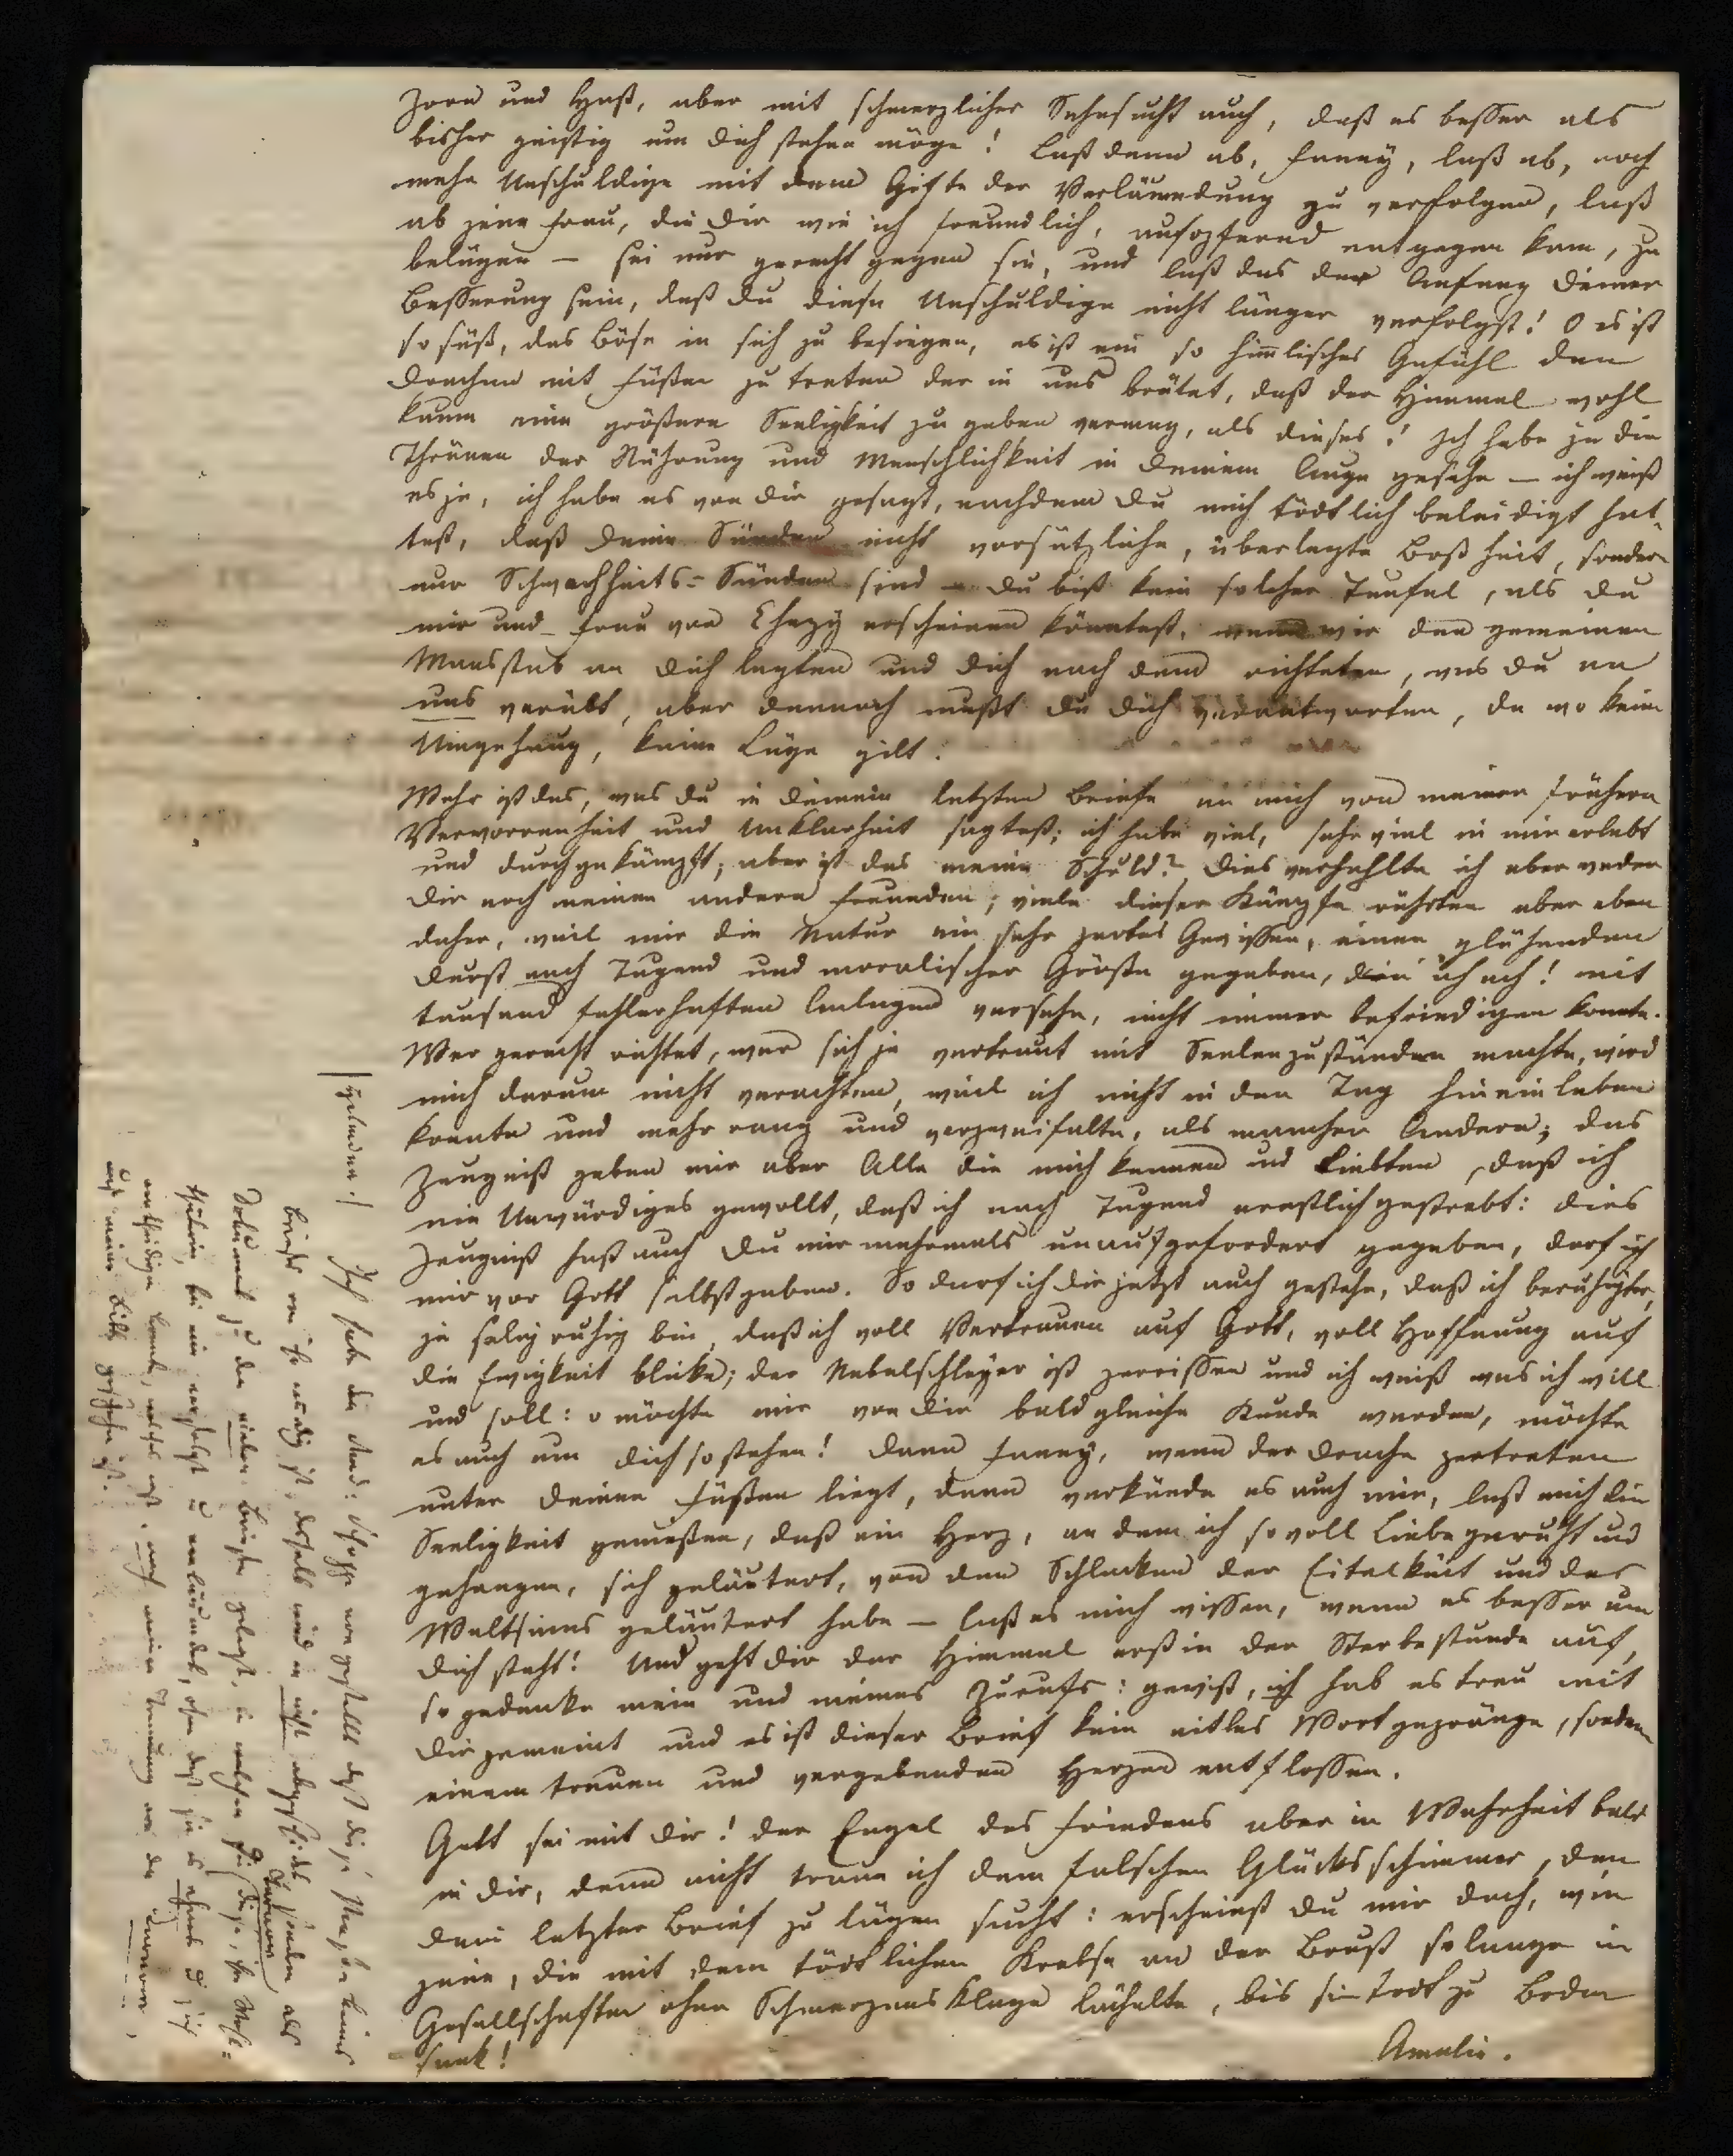 Zorn und Haß, aber mit schmerzlicher Sehnsucht auch, daß es besser als
bisher geistig um dich stehen möge! Laß denn ab, Fanny, laß ab, noch
mehr Unschuldige mit dem Gifte der Verläumdung zu verfolgen, laß
ab jene Frau, die dir wie ich freundlich, aufopfernd entgegen kam, zu
belügen – sei nur gerecht gegen sie, und laß das der Anfang deiner
Besserung sein, daß du diese Unschuldige nicht länger verfolgst! O es ist
so süß, das Böse in sich zu besiegen, es ist ein so himlisches Gefühl den
Drachen mit Füßen zu treten der in uns brütet, daß der Himmel wohl
kaum eine größere Seeligkeit zu geben vermag, als dieses! Ich habe ja die
Thränen der Rührung und Menschlichkeit in deinem Auge gesehn – ich weiß
es ja, ich habe es von dir gesagt, nachdem du mich tödtlich beleidigt hat-
test, daß deine Sünden nicht vorsätzliche, überlegte Boßheit, sondern
nur Schwachheits-Sünden sind – du bist kein solcher Teufel, als du
mir und Frau von Chezy erscheinen könntest, wenn wir den gemeinen
Maasstab an dich legten und dich nach dem richteten, was du an
uns verübt, aber dennoch mußt du dich verantworten, da wo keine
Umgehung, keine Lüge gilt.
Wahr ist das, was du in deinem letzten Briefe an mich von meiner frühern
Verworrenheit und Unklarheit sagtest; ich habe viel, sehr viel in mir erlebt
und durchgekämpft; aber ist das meine Schuld? Dies verhehlte ich aber weder
dir noch meinen andern Freunden; viele dieser Kämpfe rührten aber eben
daher, weil mir die Natur ein sehr zartes Gewissen, einen glühenden
Durst nach Tugend und moralischer Größe gegeben, den ich ach! mit
tausend fehlerhaften Anlagen versehn, nicht immer befriedigen konnte.
Wer gerecht richtet, wer sich je vertraut mit Seelenzuständen machte, wird
mich darum nicht verachten, weil ich nicht in den Tag hineinleben
konnte und mehr rang und verzweifelte, als mancher Andere; das
Zeugniß geben mir aber Alle die mich kennen und liebten, daß ich
nie Unwürdiges gewollt, daß ich nach Tugend ernstlich gestrebt: dies
Zeugniß hast auch du mir mehrmals unaufgefordert gegeben, darf ich
mir vor Gott selbst geben. So darf ich dir jetzt auch gestehn, daß ich beruhigter,
ja selig ruhig bin, daß ich voll Vertrauen auf Gott, voll Hoffnung auf
die Ewigkeit blicke; der Nebelschleyer ist zerrissen und ich weiß was ich will
und soll: o möchte mir von dir bald gleiche Kunde werden, möchte
es auch um dich so stehen! Dann Fanny, wenn der Drache zertreten
unter deinen Füßen liegt, dann verkünde es auch mir, laß mich die
Seeligkeit genießen, daß ein Herz, an dem ich so voll Liebe geruht und
gehangen, sich geläutert, von den Schlacken der Eitelkeit und des
Weltsinns geläutert habe – laß es mich wissen, wenn es besser um
dich steht! Und geht dir der Himmel erst in der Sterbestunde auf,
so gedenke mein und meines Zurufs: gewiß, ich hab es treu mit
dir gemeint und es ist dieser Brief kein eitles Wortgepränge, sondern
einem treuen und vergebenden Herzen entflossen.
Gott sei mit dir! der Engel des Friedens aber in Wahrheit bald
in dir, denn nicht traue ich dem falschen Glücksschimmer, den
dein letzter Brief zu lügen sucht: erscheinst du mir doch, wie
jene, die mit dem tödtlichen Krebse an der Brust solange in
Gesellschaften ohne Schmerzensklage lächelte, bis sie todt zu Boden
sank!
Amalie.
Ich habe die
Briefes von ihr
zu den vielen Briefen gelegt, in welchen sie
bei mir verfolgt u verläumdet, ohne daß sie es ahnt u sich
vertheidigen konnte, nach meiner Trennung von der
auf meine Bitte geschehn ist.